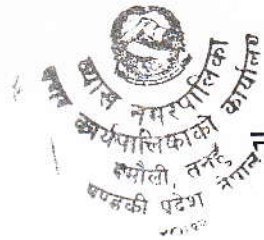 ब्यास नगरपालिका
नगर कार्यपालिकाको कार्यालय
दमौली, तनहुँ
गण्डकी प्रदेश नेपाल